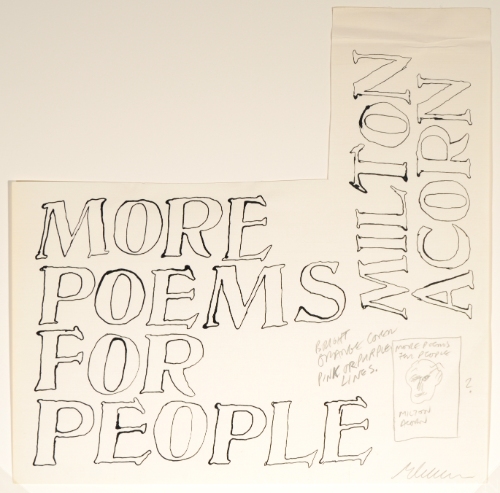 MORE
POEMS
FOR
PEOPLE
MILTON
ACORN
BRIGHT
ORANGE COVER
PINK OR PURPLE
LINES.
MORE POEMS
FOR PEOPLE
MILTON
ACORN
?